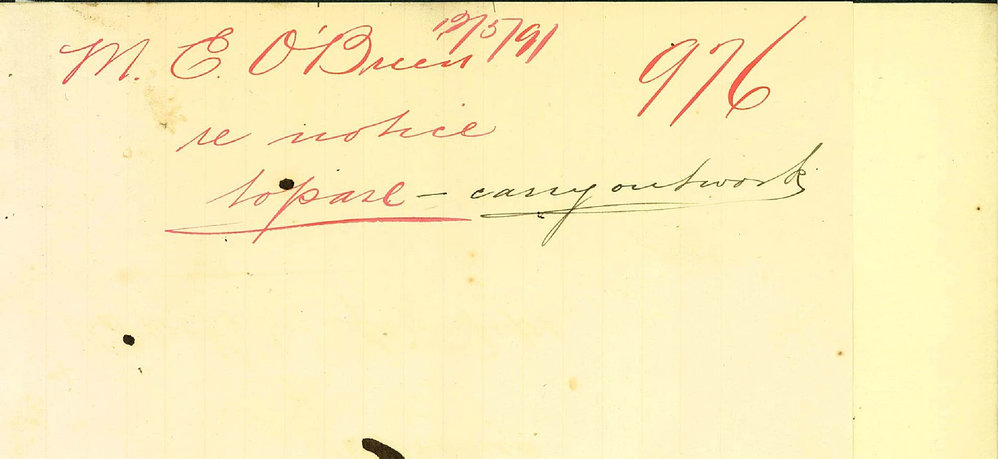 M. E. O'Brien 19/5/91 976
re notice
to pave - carry out work